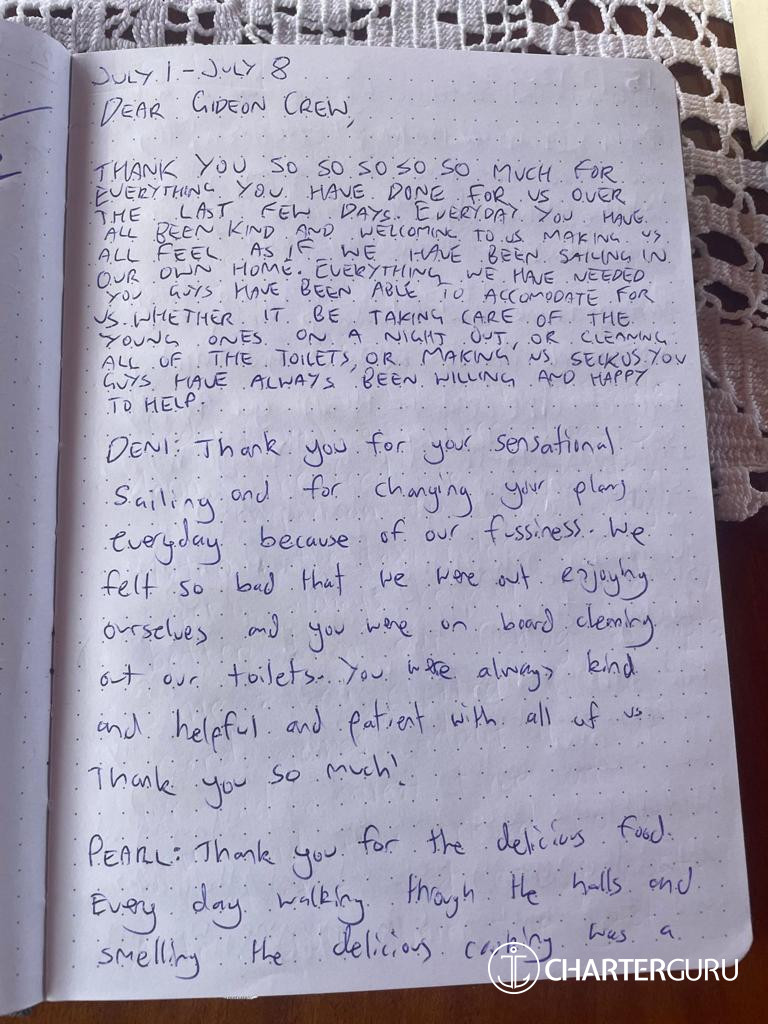 JULY 1 - JULY 8
DEAR GIDEON CREW,
THANK YOU SO SO SO SO SO MUCH FOR
EVERYTHING YOU HAVE DONE FOR US OVER
THE LAST FEW DAYS. EVERYDAY YOU HAVE
ALL BEEN KIND AND WELCOMING TO US MAKING US
ALL FEEL AS IF WE HAVE BEEN SAILING IN
OUR OWN HOME. EVERYTHING WE HAVE NEEDED
YOU GUYS HAVE BEEN ABLE TO ACCOMODATE FOR
US WHETHER IT BE TAKING CARE OF THE
YOUNG ONES ON A NIGHT OUT, OR CLEANING
ALL OF THE TOILETS, OR MAKING US YOU
GUYS HAVE ALWAYS BEEN WILLING AND HAPPY
TO HELP.
DENI: Thank you for your sensational
Sailing and for changing your plans
everyday because of our fussiness. We
felt so bad that we were out enjoying
ourselves and you were on board cleaning
out our toilets. You were always kind
and helpful and patient with all of us
Thank you so much!
PEARL: Thank you for the delicious food.
Every day walking through the halls and
smelling the delicious cooking was a
CHARTERGURU